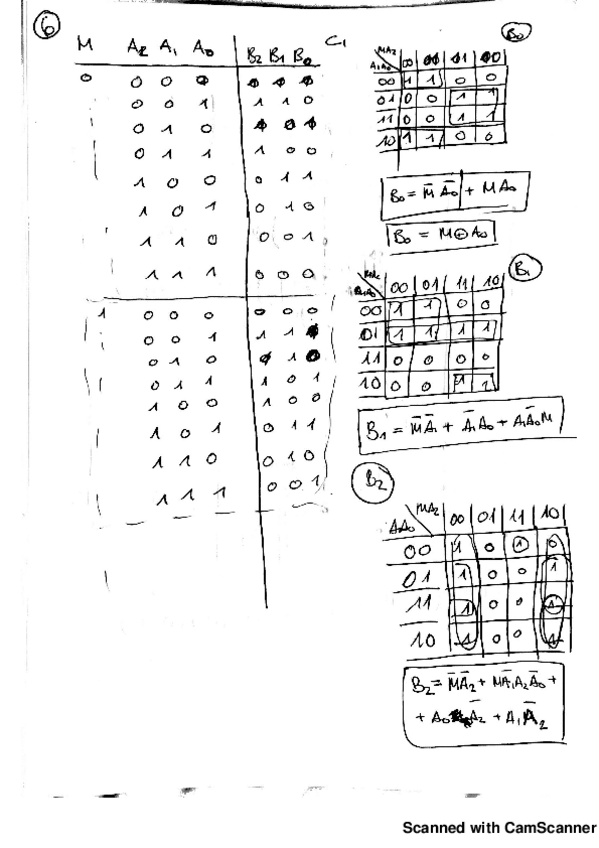 6
M A₂ A₁ A₀ B₂ B₁ B₀ C₁
0 0 0 0
0 0 1 1 1 0
0 1 0
0 1 1 1 0 0
1 0 0 0 1 1
1 0 1 0 1 0
1 1 0 0 0 1
1 1 1 0 0 0
1 0 0 0 0 0 0
0 0 1 1 1
0 1 0 1
0 1 1 1 0 1
1 0 0 1 0 0
1 0 1 0 1 1
1 1 0 0 1 0
1 1 1 0 0 1
B₀
MA₂ 00
A₁A₀
00 1 1 0 0
01 0 0 1 1
11 0 0 1 1
10 1 1 0 0
B₀ = M̄ Ā₀ + MA₀
B₀ = M⊕A₀
B₁
00 01 11 10
00 1 1 0 0
01 1 1 1 1
11 0 0 0 0
10 0 0 1 1
B₁ = M̄Ā₁ + Ā₁A₀ + A₁Ā₀M
B₂
MA₂ 00 01 11 10
00 1 0 1 0
01 1 0 0 1
11 1 0 0 1
10 1 0 0 1
B₂ = M̄Ā₂ + MĀ₁A₂Ā₀ +
+ A₀Ā₂ + A₁Ā₂
Scanned with CamScanner